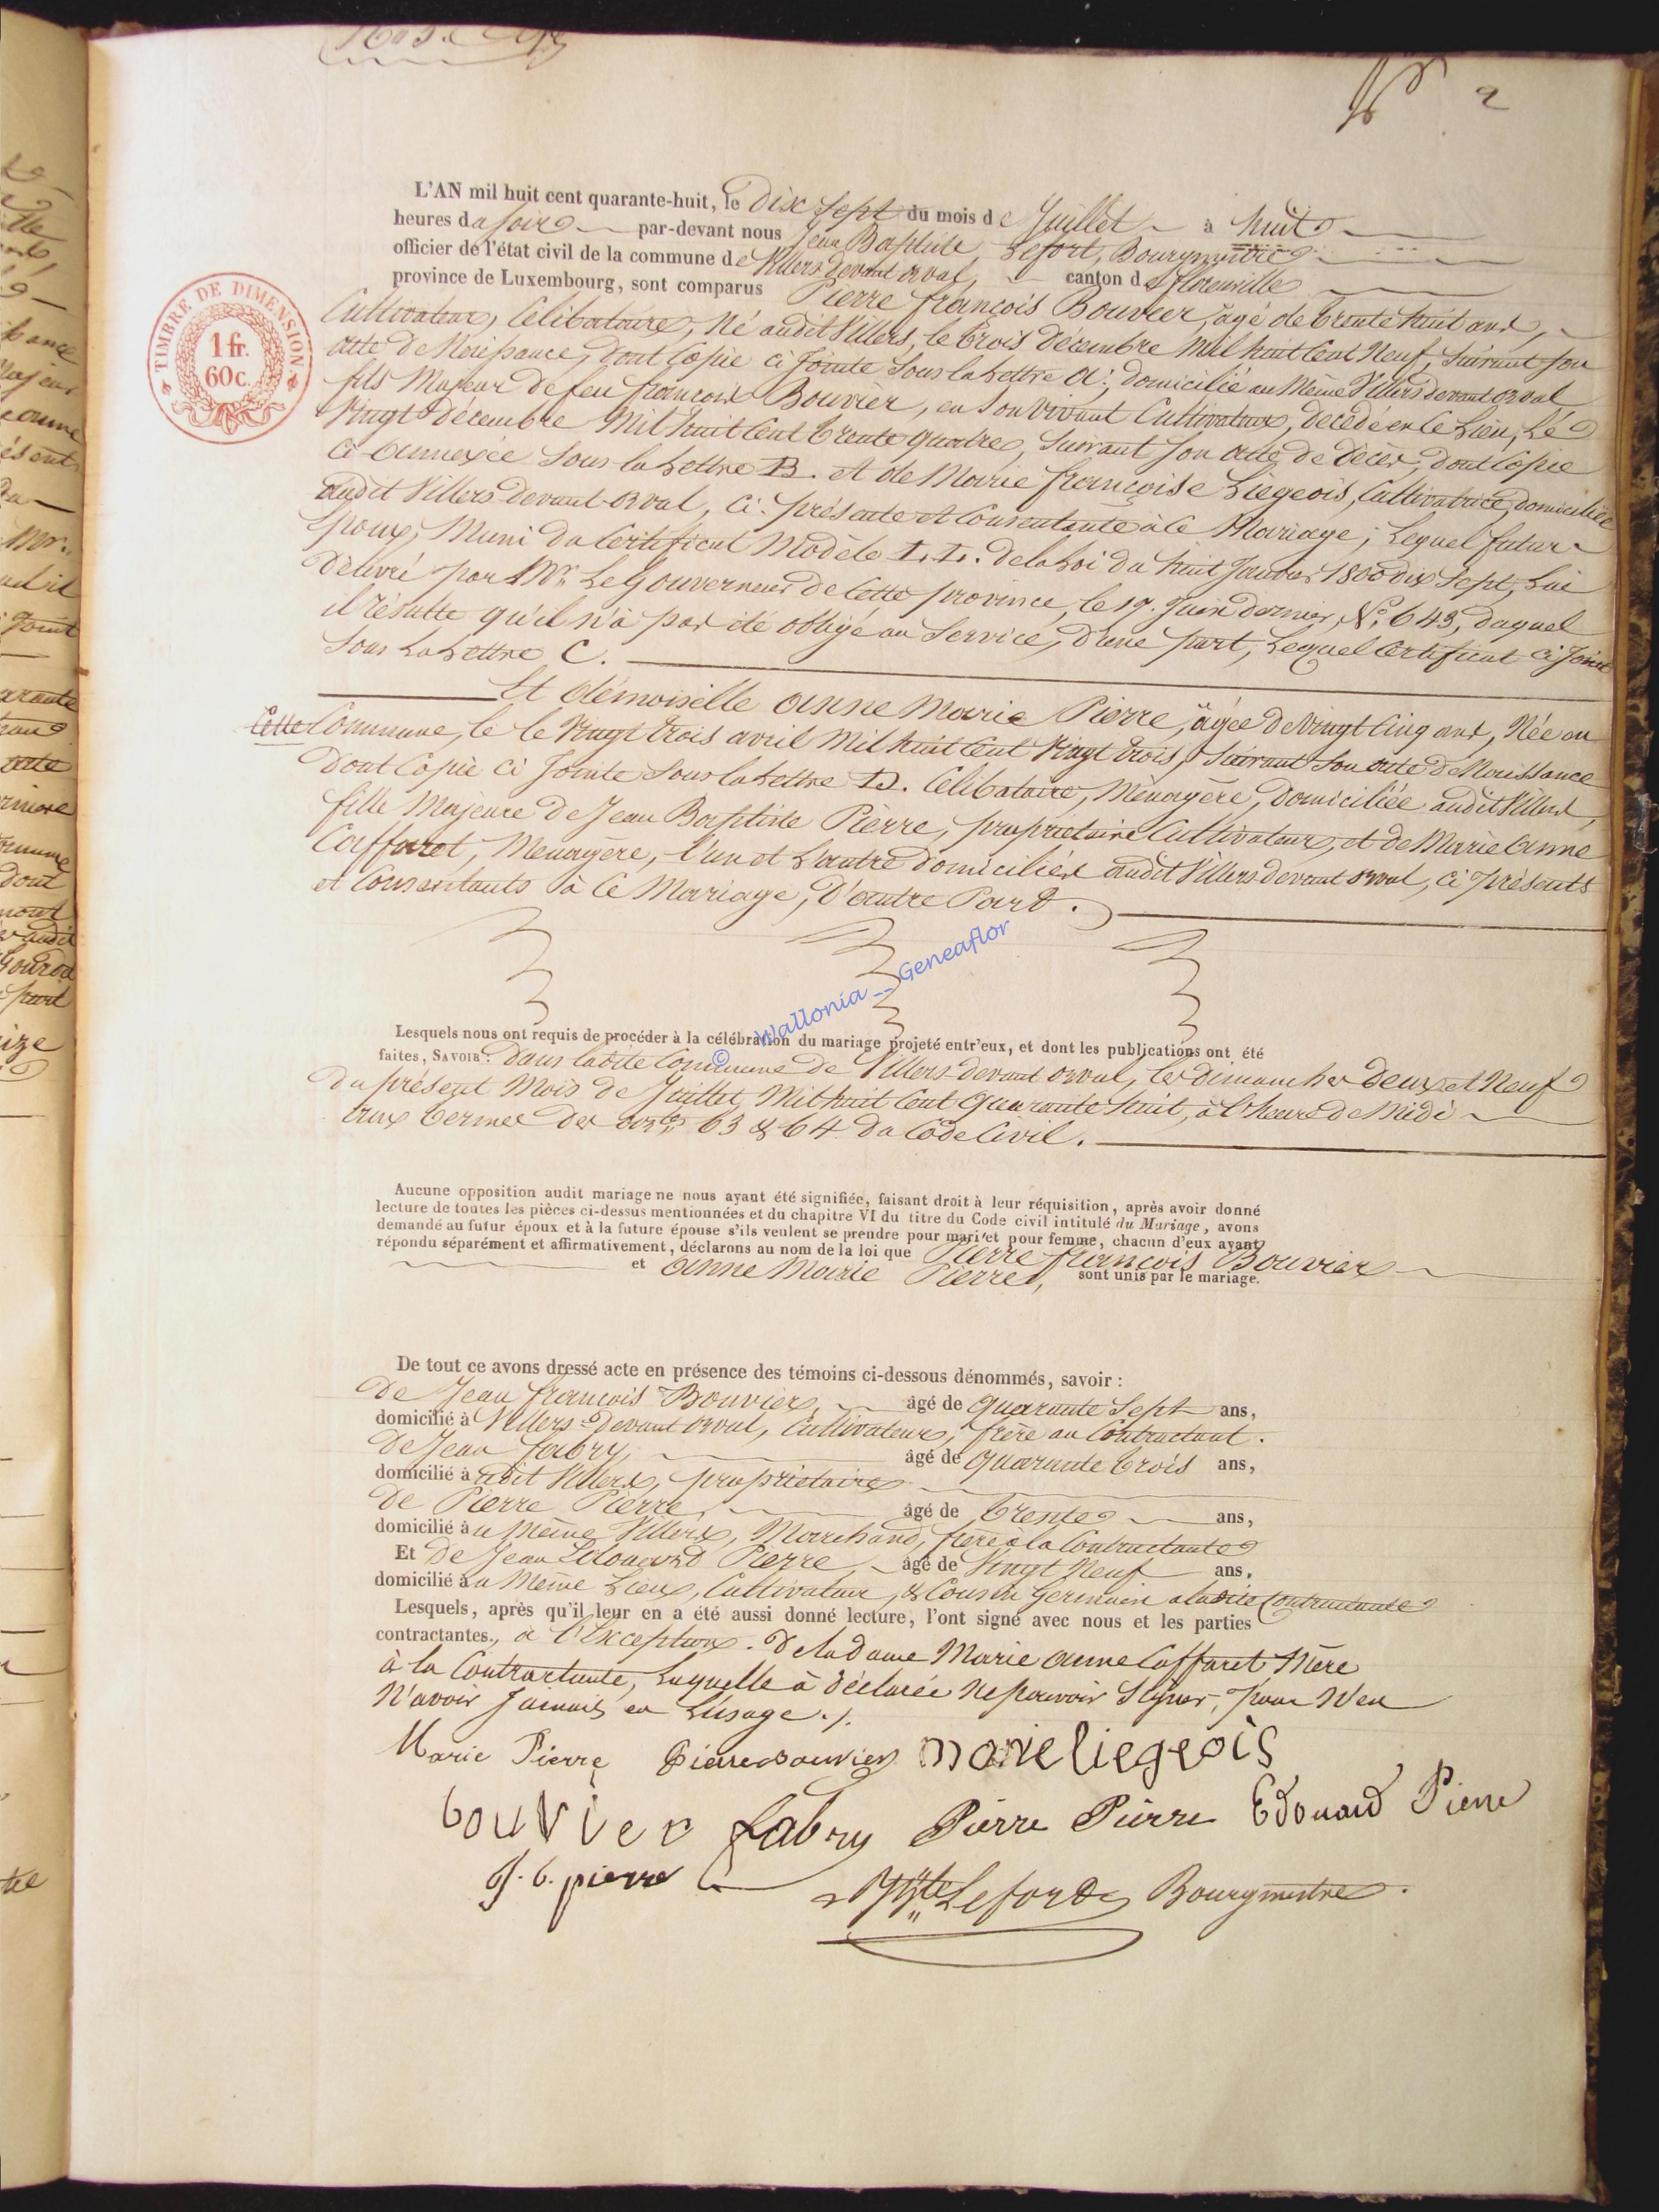 N° 2
L'AN mil huit cent quarante-huit, le Dix Sept du mois de Juillet à huit
heures du soir par-devant nous Jean Baptiste Lefort, Bourgmestre
officier de l'état civil de la commune de Villers devant orval, canton de florenville
province de Luxembourg, sont comparus Pierre françois Bouvier, âgé de trente huit ans,
Cultivateur, Célibataire, Né audit Villers, le trois Décembre Mil huit Cent Neuf, Suivant Son
acte de Naissance, dont Copie ci Jointe Sous la Lettre A: domicilié au Même Villers devant orval
fils Majeur de feu françois Bouvier, en Son vivant Cultivateur, décédé en ce Lieu, Le
Vingt Décembre Mil huit Cent trente quatre, Suivant Son acte de Décès, dont Copie
ci annexée Sous la Lettre B. et de Marie françoise Liegeois, Cultivatrice, domiciliée
audit Villers devant orval, ci présente et Consentante à ce Mariage; Lequel futur
Epoux, Muni du Certificat Modèle L.L. de la Loi du huit Janvier 1800 dix Sept, Lui
Délivré par Mr. Le Gouverneur de Cette province, le 17. Juin dernier, N°. 643, duquel
il résulte qu'il n'à pas été obligé au Service, d'une part, Lequel Certificat ci Joint
Sous La Lettre C.
Et démoiselle Anne Marie Pierre, âgée de Vingt Cinq ans, Née en
Cette Commune, le le Vingt trois avril Mil huit Cent Vingt trois, Suivant Son acte de Naissance
Dont Copie ci Jointe Sous la Lettre D. Célibataire, Ménagère, Domiciliée audit Villers,
fille Majeure de Jean Baptiste Pierre, propriétaire Cultivateur, et de Marie Anne
Caffaret, Ménagère, l'un et L'autre domiciliés audit Villers devant orval, ci présents
et Consentants à ce Mariage, D'autre Part.
Lesquels nous ont requis de procéder à la célébration du mariage projeté entr'eux, et dont les publications ont été
faites, SAVOIR: dans ladite Commune de Villers devant orval, les dimanches deux et Neuf
du présent Mois de Juillet, Mil huit Cent Quarante huit, à l'heure de Midi
aux termes des arts. 63 & 64 du Code Civil.
Aucune opposition audit mariage ne nous ayant été signifiée, faisant droit à leur réquisition, après avoir donné
lecture de toutes les pièces ci-dessus mentionnées et du chapitre VI du titre du Code civil intitulé du Mariage, avons
demandé au futur époux et à la future épouse s'ils veulent se prendre pour mari et pour femme, chacun d'eux ayant
répondu séparément et affirmativement, déclarons au nom de la loi que Pierre françois Bouvier
et Anne Marie Pierre, sont unis par le mariage.
De tout ce avons dressé acte en présence des témoins ci-dessous dénommés, savoir:
De Jean françois Bouvier, âgé de quarante Sept ans,
domicilié à Villers devant orval, Cultivateur, frère au Contractant.
De Jean Fabry, âgé de quarante trois ans,
domicilié audit Villers, propriétaire
De Pierre Pierre, âgé de trente ans,
domicilié au Même Villers, Marchand, frère à la Contractante
Et De Jean Edouard Pierre, âgé de Vingt Neuf ans,
domicilié au Même Lieu, Cultivateur, & Cousin Germain à ladite Contractante
Lesquels, après qu'il leur en a été aussi donné lecture, l'ont signé avec nous et les parties
contractantes., à l'Exception. de la dame Marie Anne Caffaret Mère
à la Contractante, Laquelle à déclarée Ne pouvoir Signer, pour N'en
N'avoir Jamais eu L'usage./.
Marie Pierre Pierre bouvier marie liegeois
bouvier fabry Pierre Pierre Edouard Pierre
J. b. pierre Lefort Bourgmestre.
TIMBRE DE DIMENSION.
1 fr.
60 c.
© Wallonia__Geneaflor